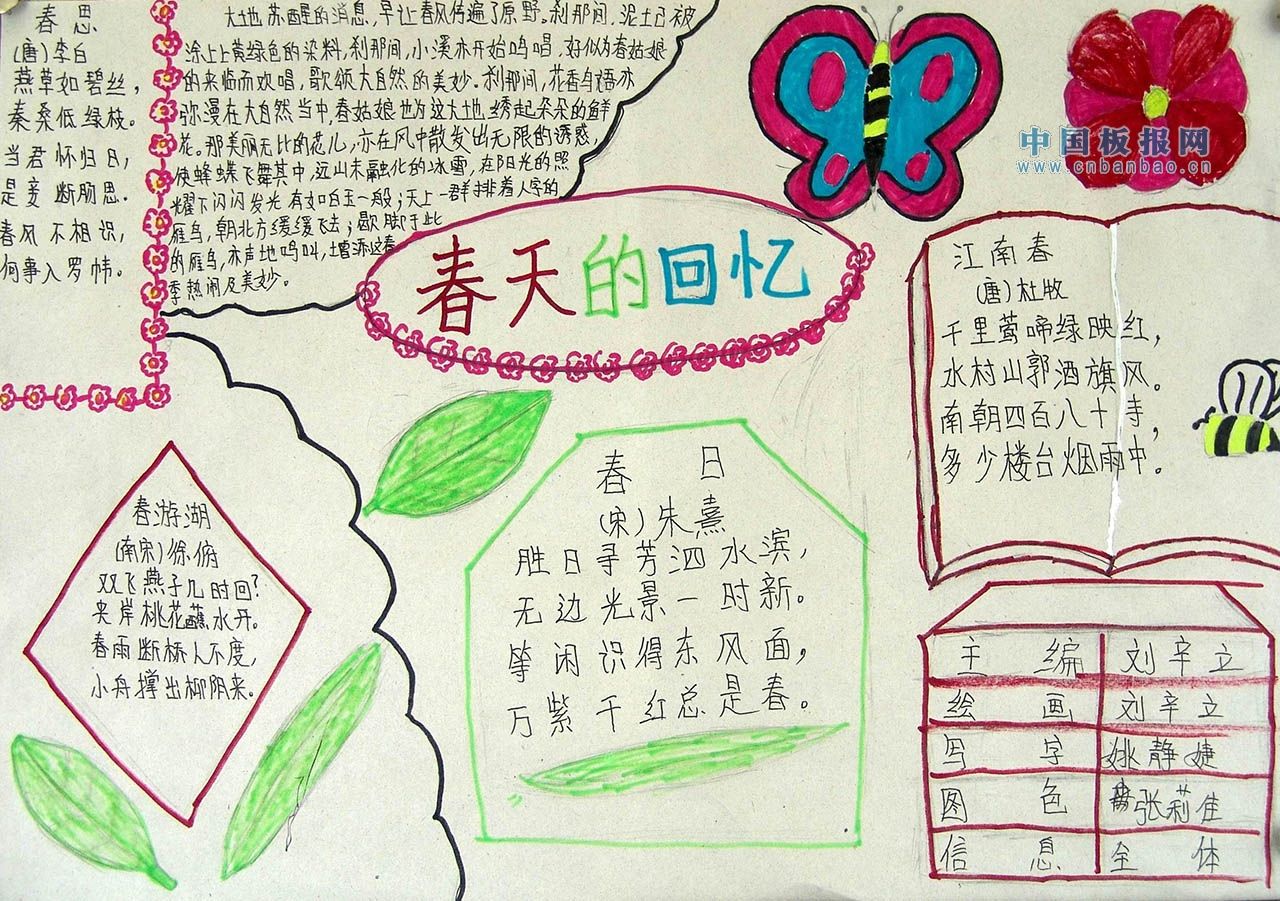 春思
(唐)李白
燕草如碧丝,
秦桑低绿枝。
当君怀归日,
是妾断肠思.
春风不相识,
何事入罗帏。
大地苏醒的消息,早让春风传遍了原野.刹那间,泥土已被
涂上上黄绿色的染料,刹那间,小溪亦开始鸣唱,好似为春姑娘
的来临而欢唱,歌颂大自然的美妙.刹那间,花香鸟语亦
弥漫在大自然当中,春姑娘也为这大地绣起朵朵的鲜
花。那美丽无比的花儿,亦在风中散发出无限的诱惑,
使蜂蝶飞舞其中,远山未融化的冰雪,在阳光的照
耀下闪闪发光有如白玉一般;天上一群排着人字的
雁鸟,朝北方缓缓飞去;歇脚于此
的雁鸟,亦声地鸣叫,增添这春
季热闹及美妙。
春天的回忆
中国板报网
www.cnbanbao.cn
江南春
(唐)杜牧
千里莺啼绿映红,
水村山郭酒旗风。
南朝四百八十寺,
多少楼台烟雨中。
春游湖
(南宋)徐俯
双飞燕子几时回?
夹岸桃花蘸水开。
春雨断桥人不度,
小舟撑出柳阴来。
春日
(宋)朱熹
胜日寻芳泗水滨,
无边光景一时新。
等闲识得东风面,
万紫千红总是春。
主编 刘辛立
绘画 刘辛立
写字 姚静婕
图色 张莉佳
信息 全体